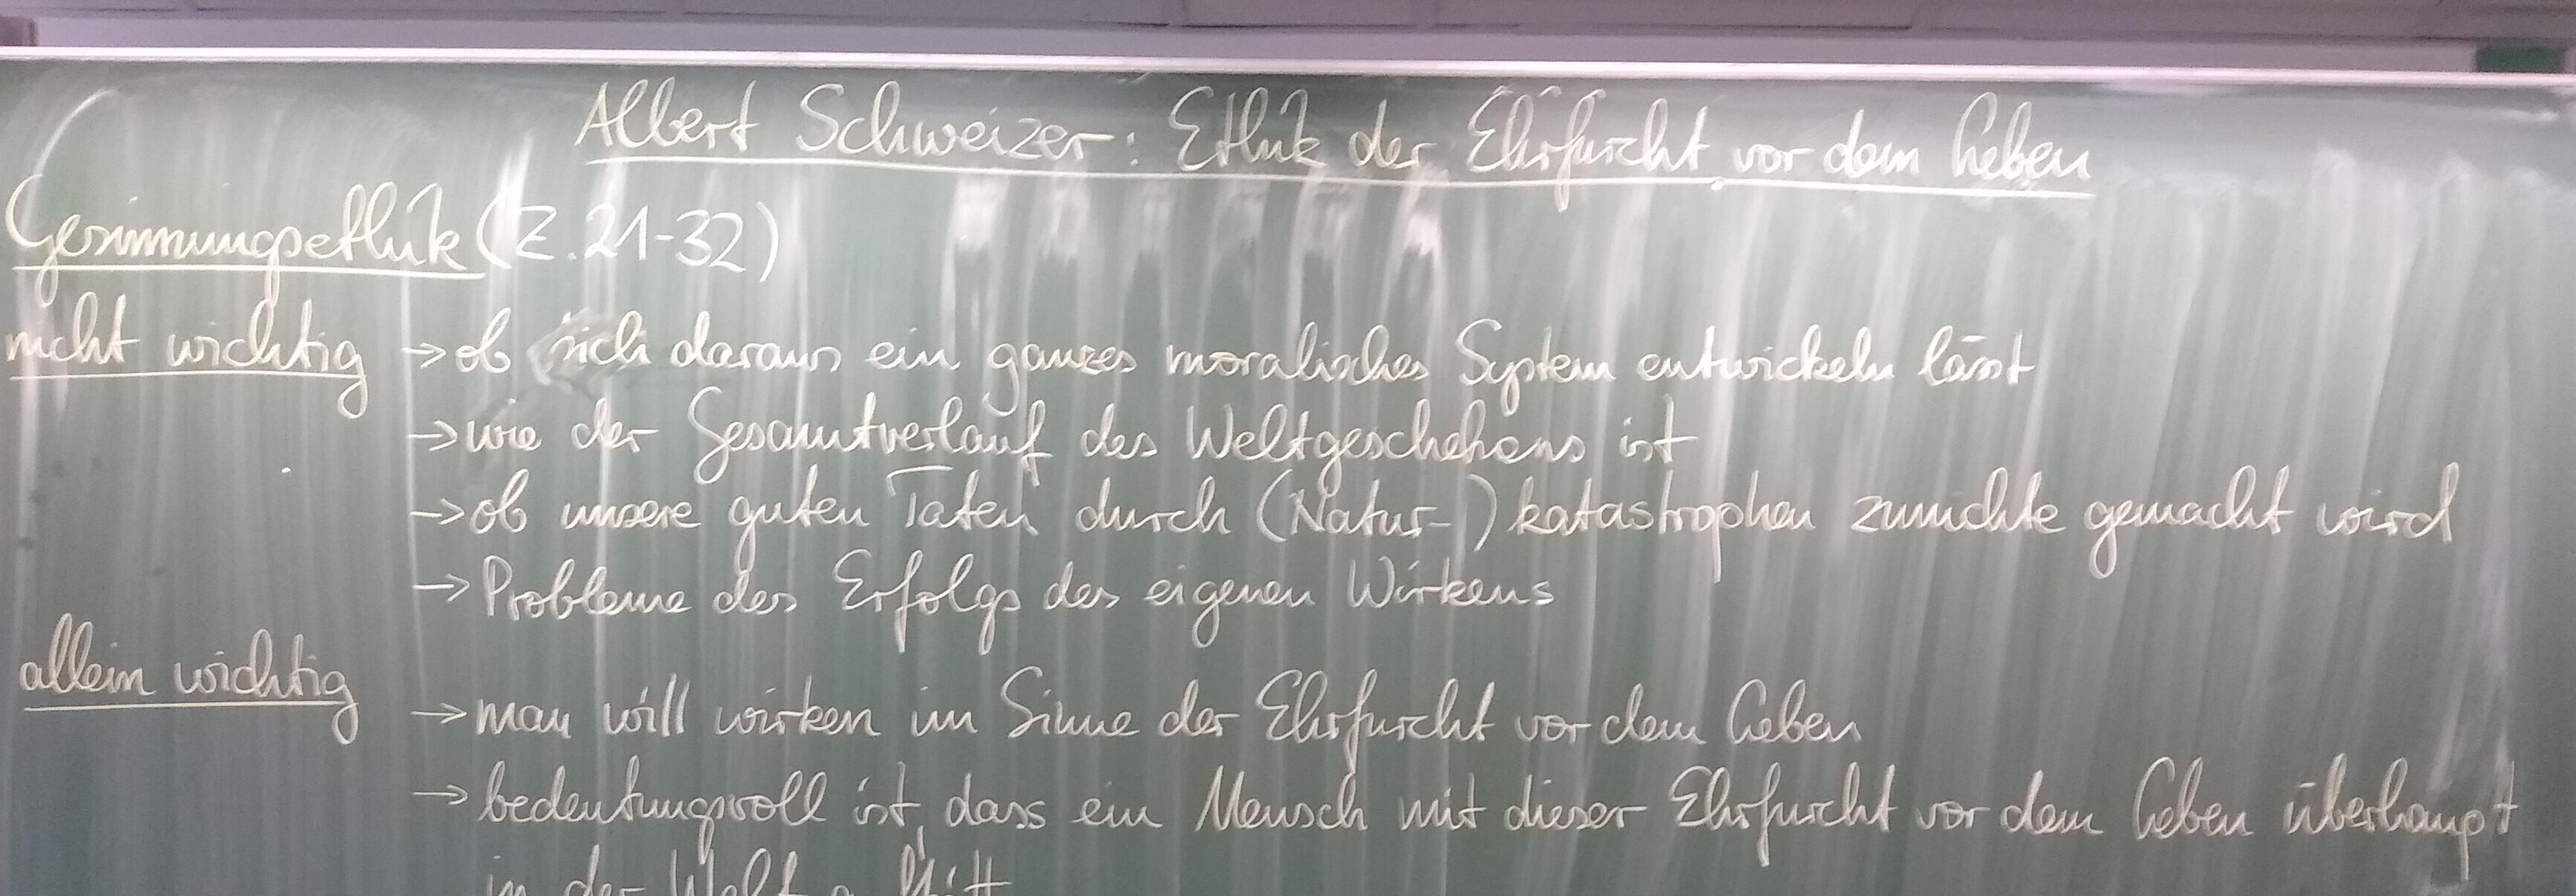 Albert Schweizer: Ethik der Ehrfurcht vor dem Leben
Gesinnungsethik (Z. 21-32)
nicht wichtig → ob sich daraus ein ganzes moralisches System entwickeln lässt
→ wie der Gesamtverlauf des Weltgeschehens ist
→ ob unsere guten Taten durch (Natur-) katastrophen zunichte gemacht wird
→ Probleme des Erfolgs des eigenen Wirkens
allein wichtig
→ man will wirken im Sinne der Ehrfurcht vor dem Leben
→ bedeutungsvoll ist, dass ein Mensch mit dieser Ehrfurcht vor dem Leben überhaupt
in der Welt